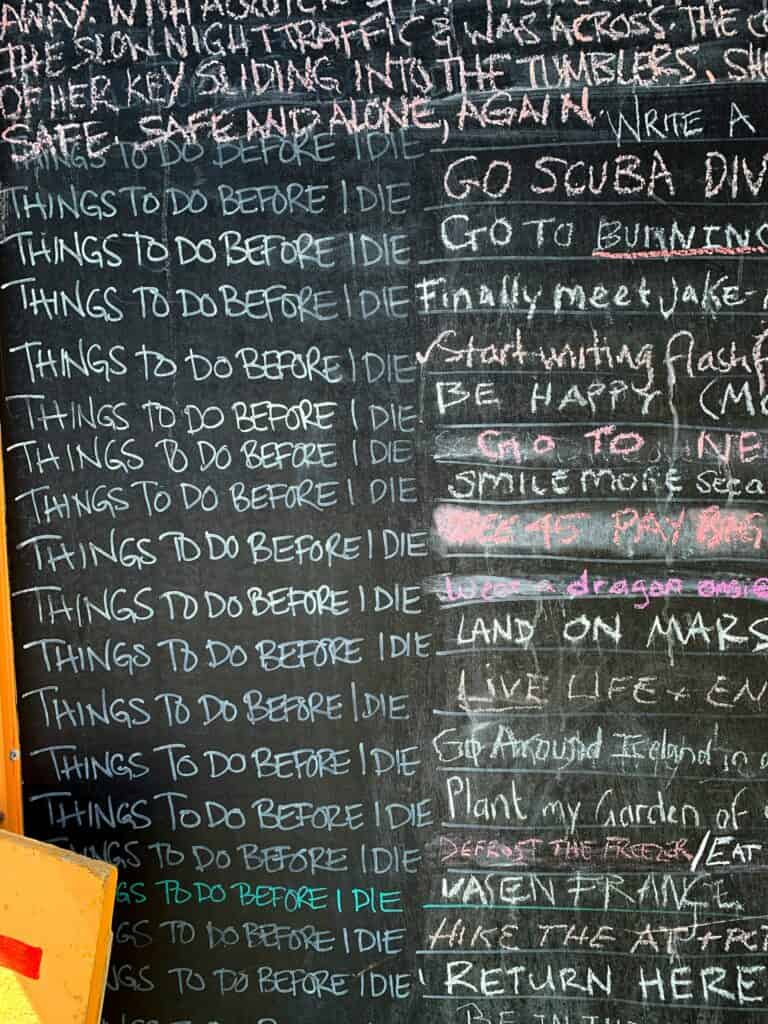 AWAY. WITH A
THE SION NIGHT TRAFFIC & WAS ACROSS THE
OF HER KEY SLIDING INTO THE TUMBLERS. SHE
SAFE. SAFE AND ALONE, AGAIN.
THINGS TO DO BEFORE I DIE WRITE A
THINGS TO DO BEFORE I DIE GO SCUBA DIV
THINGS TO DO BEFORE I DIE GO TO BURNING
THINGS TO DO BEFORE I DIE Finally meet Jake-
THINGS TO DO BEFORE I DIE ✓Start writing flash f
THINGS TO DO BEFORE I DIE BE HAPPY (MO
THINGS TO DO BEFORE I DIE GO TO NE
THINGS TO DO BEFORE I DIE SMILE MORE
THINGS TO DO BEFORE I DIE SEE 45 PAY
THINGS TO DO BEFORE I DIE Wear a dragon onsie
THINGS TO DO BEFORE I DIE LAND ON MARS
THINGS TO DO BEFORE I DIE LIVE LIFE + EN
THINGS TO DO BEFORE I DIE Go Around Iceland in a
THINGS TO DO BEFORE I DIE Plant my Garden of
NGS TO DO BEFORE I DIE DEFROST THE FREEZER/EAT
GS TO DO BEFORE I DIE FRANCE
GS TO DO BEFORE I DIE HIKE THE AT + PCT
NGS TO DO BEFORE I DIE RETURN HERE
BEFORE I DIE BE IN THE